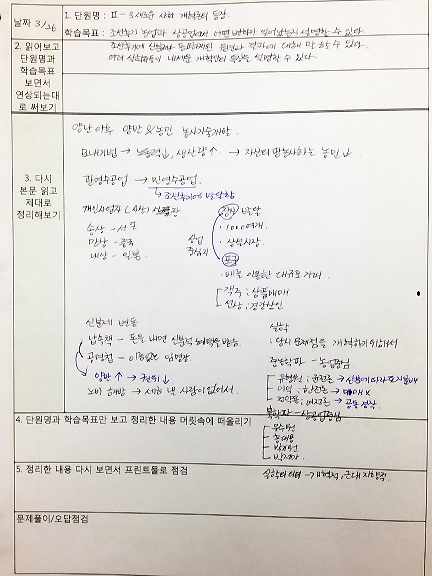 날짜 3/26
1. 단원명 : Ⅱ-3 새로운 사회 개혁론의 등장
학습목표 : 조선후기 농업과 상공업에서 어떤 변화가 일어났는지 설명할 수 있다.
조선후기에 신분제
대해 말할 수 있다.
여러 실학자들이 내세운 개혁안의 특징을 설명할 수 있다.
2. 읽어보고
단원명과
학습목표
보면서
연상되는대
로 써보기
3. 다시
본문 읽고
제대로
정리해보기
양난 이후 양반 & 농민 농사기술개량
모내기법 → 노동력↓, 생산량↑ → 자신의 땅 농사하는 농민↓
관영수공업 → 민영수공업
조선후기에 발달함
개인사업자 (사상) 성장
송상 -
만상 - 중국
내상 - 일본
상업
중심지
장시 발달
· 1000여개
· 상설시장
포구
· 배를 이용한 대규모 거래
객주 ; 상품매매
선상 ; 경강상인
신분제 변동
납속책 - 돈을 내면 신분적 혜택을 받음
공명첩 - 이름없는 임명장
양반↑ → 권위↓
노비 해방 → 세금 낼 사람이 없어서.
실학
; 당시 문제점을 개혁하기 위해서
중농학파 - 농업중심
유형원 ; 균전론 → 신분에 따라 토지분배
이익 ; 한전론 → 매매 X
정약용 ; 여전론 → 공동 경작
북학파 - 상공업중심
유수원
홍대용
박지원
박제가
4. 단원명과 학습목표만 보고 정리한 내용 머릿속에 떠올리기
5. 정리한 내용 다시 보면서 프린트물로 점검
실학의 의의 - 개혁적, 근대지향적
문제풀이/오답점검